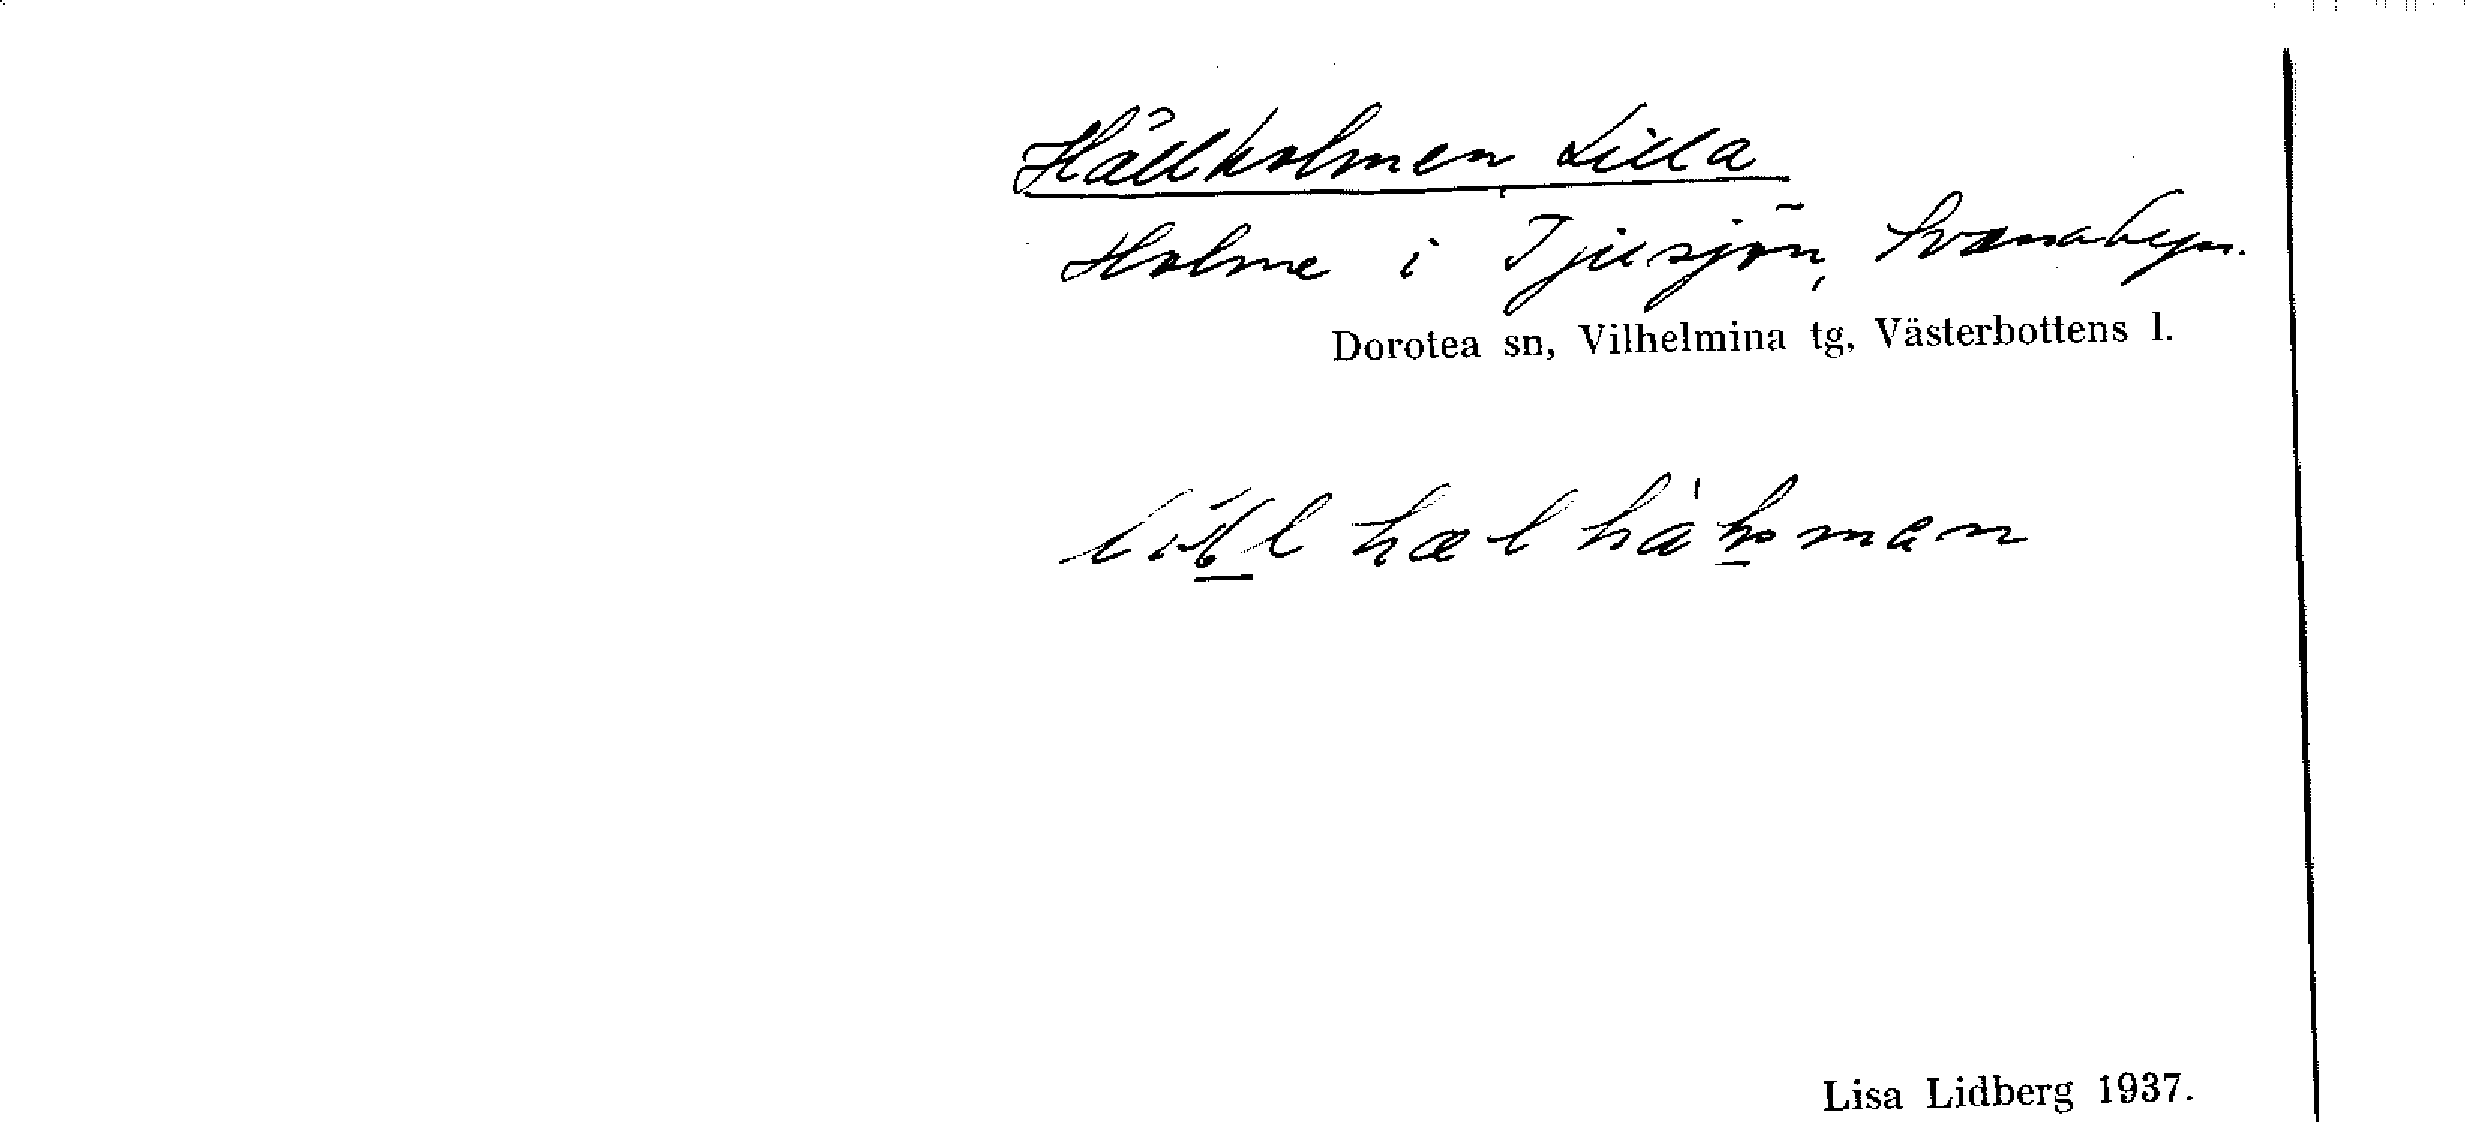 Hällholmen, Lilla
Holme i Tjilsjön, Svanabyn.
Dorotea sn, Vilhelmina tg, Västerbottens l.
Lisa Lidberg 1937.